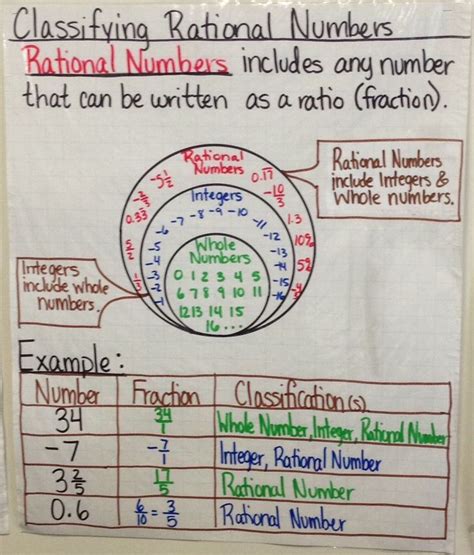 Classifying Rational Numbers
Rational Numbers includes any number
that can be written as a ratio (fraction).
Rational
Numbers
-5 1/2
0.17
-2/3
-10/3
0.33
1.3
5/2
10%
52
1/3
-4/5
Integers
-1
-2
-3
-4
-5
-6
-7 -8 -9 -10 -11
-12
-13
-14
-15
-16
Whole
Numbers
0 1 2 3 4 5
6 7 8 9 10 11
12 13 14 15
16...
Rational Numbers
include Integers &
Whole numbers.
Integers
include whole
numbers.
Example:
Number Fraction Classification(s)
34 34/1 Whole Number, Integer, Rational Number
-7 -7/1 Integer, Rational Number
3 2/5 17/5 Rational Number
0.6 6/10 = 3/5 Rational Number